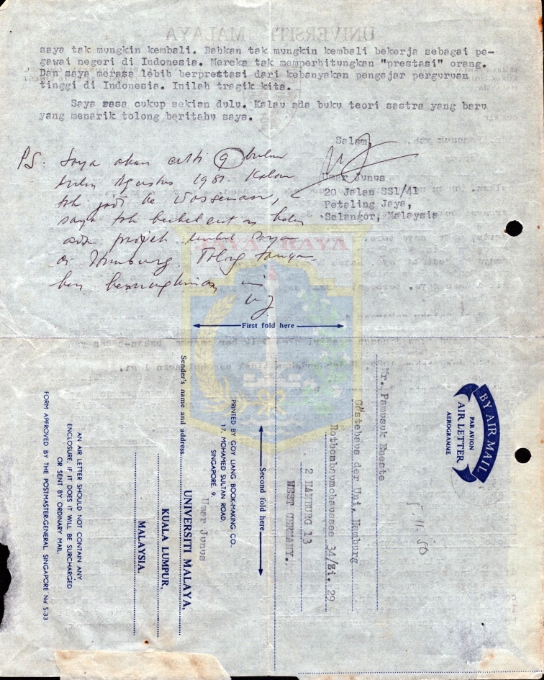 saya tak mungkin kembali. Bahkan tak mungkin kembali bekerja sebagai pe-
gawai negeri di Indonesia. Mereka tak memperhitungkan "prestasi" orang.
Dan saya merasa lebih berprestasi dari kebanyakan pengajar perguruan
tinggi di Indonesia. Inilah tragik kita.
Saya rasa cukup sekian dulu. Kalau ada buku teori sastra yang baru
yang menarik tolong beritahu saya.
Salam,
Umar Junus
20 Jalan SS1/41
Petaling Jaya,
Selangor, Malaysia
PS: Saya akan cuti 9 bulan
Agustus 1981. Kalau
tak jadi ke Wassenaar,
saya
ada projek untuk saya
di Hamburg. Tolong
First fold here
Second fold here
BY AIR MAIL
PAR AVION
AIR LETTER
AEROGRAMME
Mr. Pamusuk Eneste
Gästehaus der Uni. Hamburg
Rothenbaumchaussee 34/Zi. 29
2 HAMBURG 13
WEST GERMANY.
PRINTED BY GOY LIANG BOOK-MAKING CO.
17, MOHAMED SULTAN ROAD,
SINGAPORE, 9.
Sender's name and address
Umar Junus
UNIVERSITI MALAYA,
KUALA LUMPUR,
MALAYSIA.
AN AIR LETTER SHOULD NOT CONTAIN ANY
ENCLOSURE; IF IT DOES IT WILL BE SURCHARGED
OR SENT BY ORDINARY MAIL.
FORM APPROVED BY THE POSTMASTER-GENERAL, SINGAPORE No. S-33